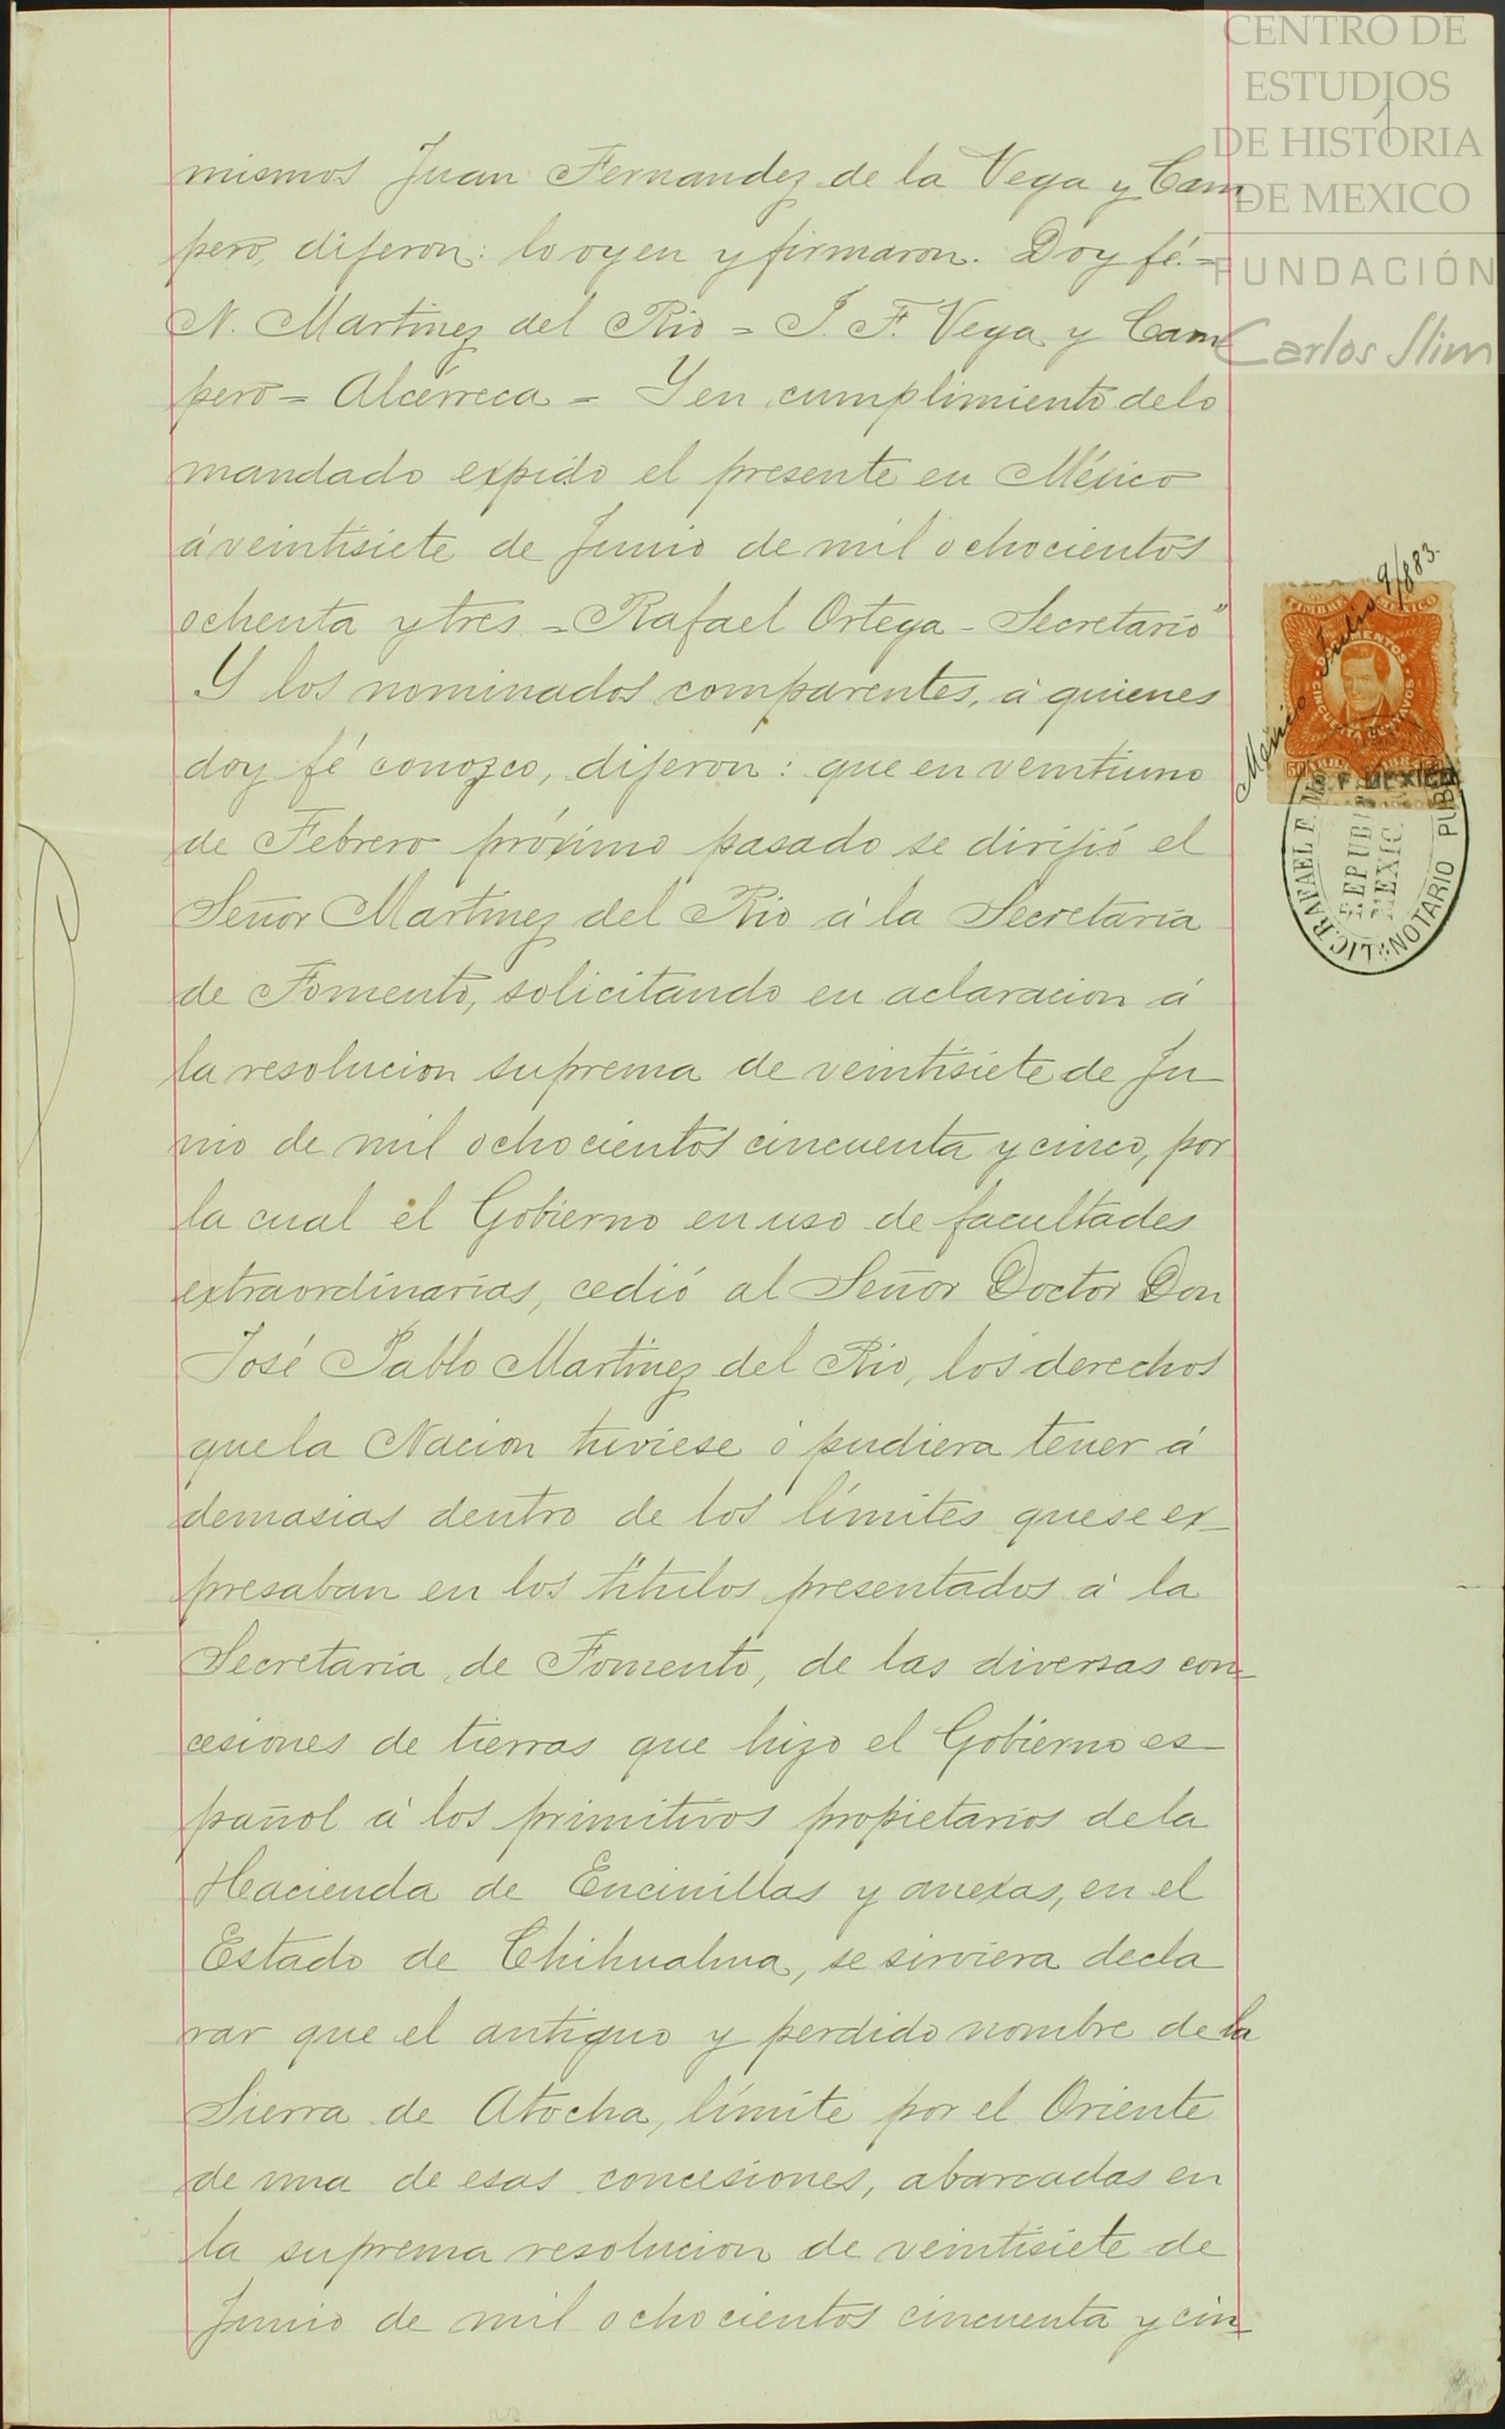 CENTRO DE
ESTUDIOS
DE HISTORIA
DE MEXICO
FUNDACIÓN
Carlos Slim
mismos Juan Fernandez de la Vega y Cam
pero, dijeron: lo oyen y firmaron. Doy fé.=
N. Martinez del Rio = J. F. Vega y Cam
pero = Alcérreca = Y en cumplimiento de lo
mandado expido el presente en México
á veintisiete de Junio de mil ochocientos
ochenta y tres = Rafael Ortega - Secretario"
Y los nominados comparentes, á quienes
doy fé conozco, dijeron: que en veintiuno
de Febrero próximo pasado se dirijió el
Señor Martinez del Rio á la Secretaría
de Fomento, solicitando en aclaracion á
la resolucion suprema de veintisiete de Ju
nio de mil ochocientos cincuenta y cinco, por
la cual el Gobierno en uso de facultades
extraordinarias, cedió al Señor Doctor Don
José Pablo Martinez del Rio, los derechos
que la Nacion tuviese ó pudiera tener á
demasias dentro de los límites que se ex_
presaban en los títulos presentados á la
Secretaria de Fomento, de las diversas con_
cesiones de tierras que hizo el Gobierno es_
pañol á los primitivos propietarios de la
Hacienda de Encinillas y anexas, en el
Estado de Chihuahua, se sirviera decla
rar que el antiguo y perdido nombre de la
Sierra de Atocha, límite por el Oriente
de una de esas concesiones, abarcadas en
la suprema resolucion de veintisiete de
Junio de mil ochocientos cincuenta y cin_
México Julio 9/883.
TIMBRE MEXICO
DOCUMENTOS
CINCUENTA CENTAVOS
50
D. F. MEXICO
LIC. RAFAEL F.
NOTARIO PUB
REPUB
MEXIC